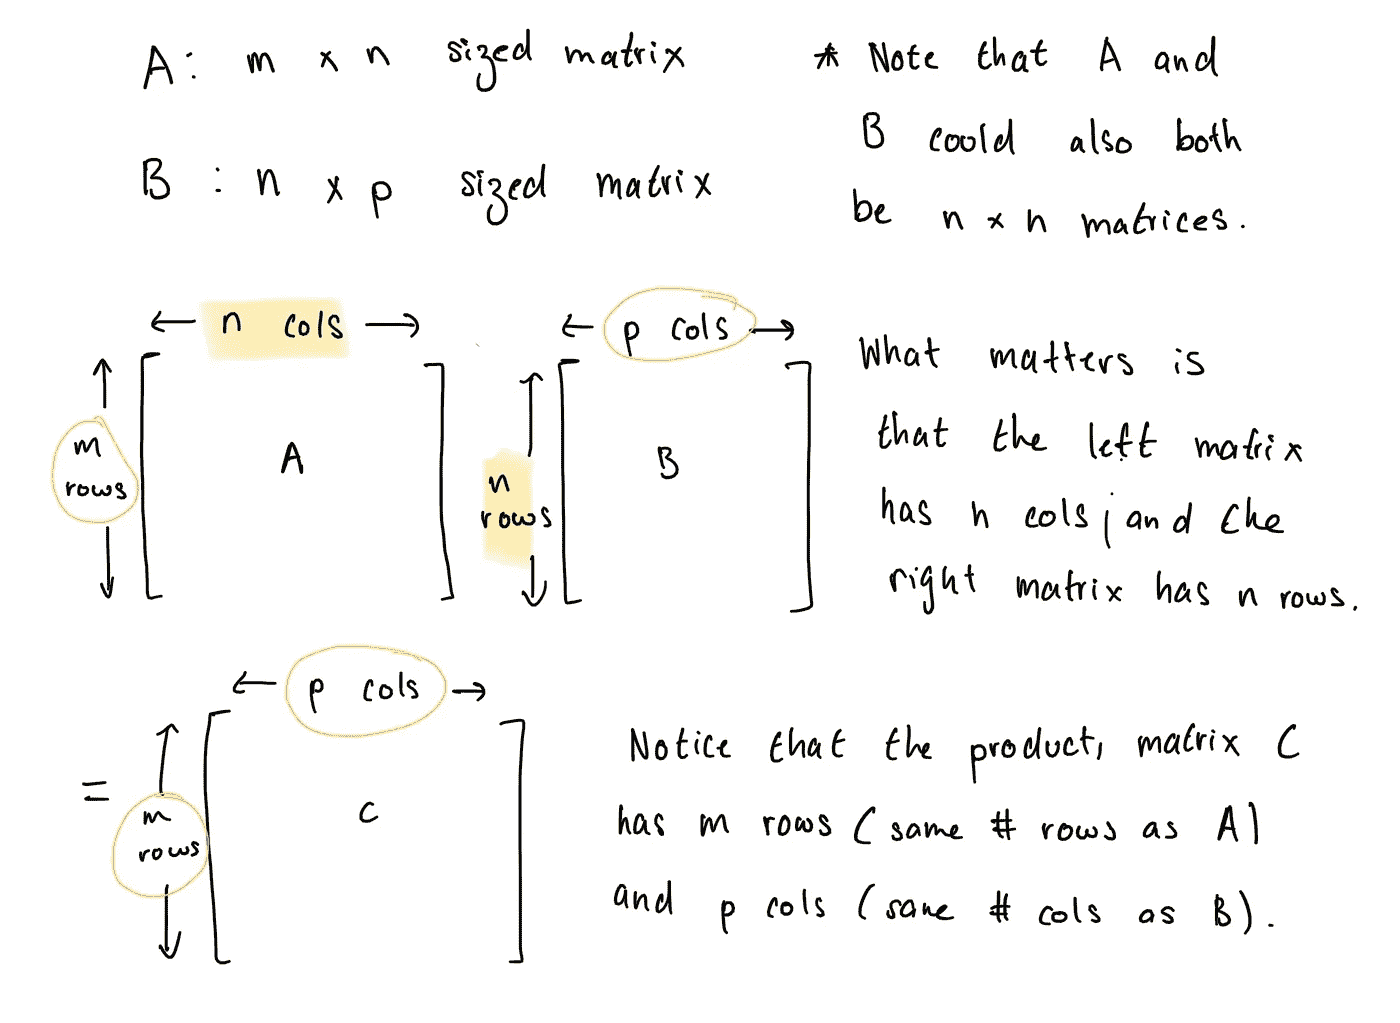 A: m x n sized matrix
B : n x p sized matrix
* Note that A and
B could also both
be n x n matrices.
← n cols →
← p cols →
m
rows
A
n
rows
B
What matters is
that the left matrix
has n cols, and the
right matrix has n rows.
← p cols →
=
m
rows
C
Notice that the product, matrix C
has m rows (same # rows as A)
and p cols (same # cols as B).